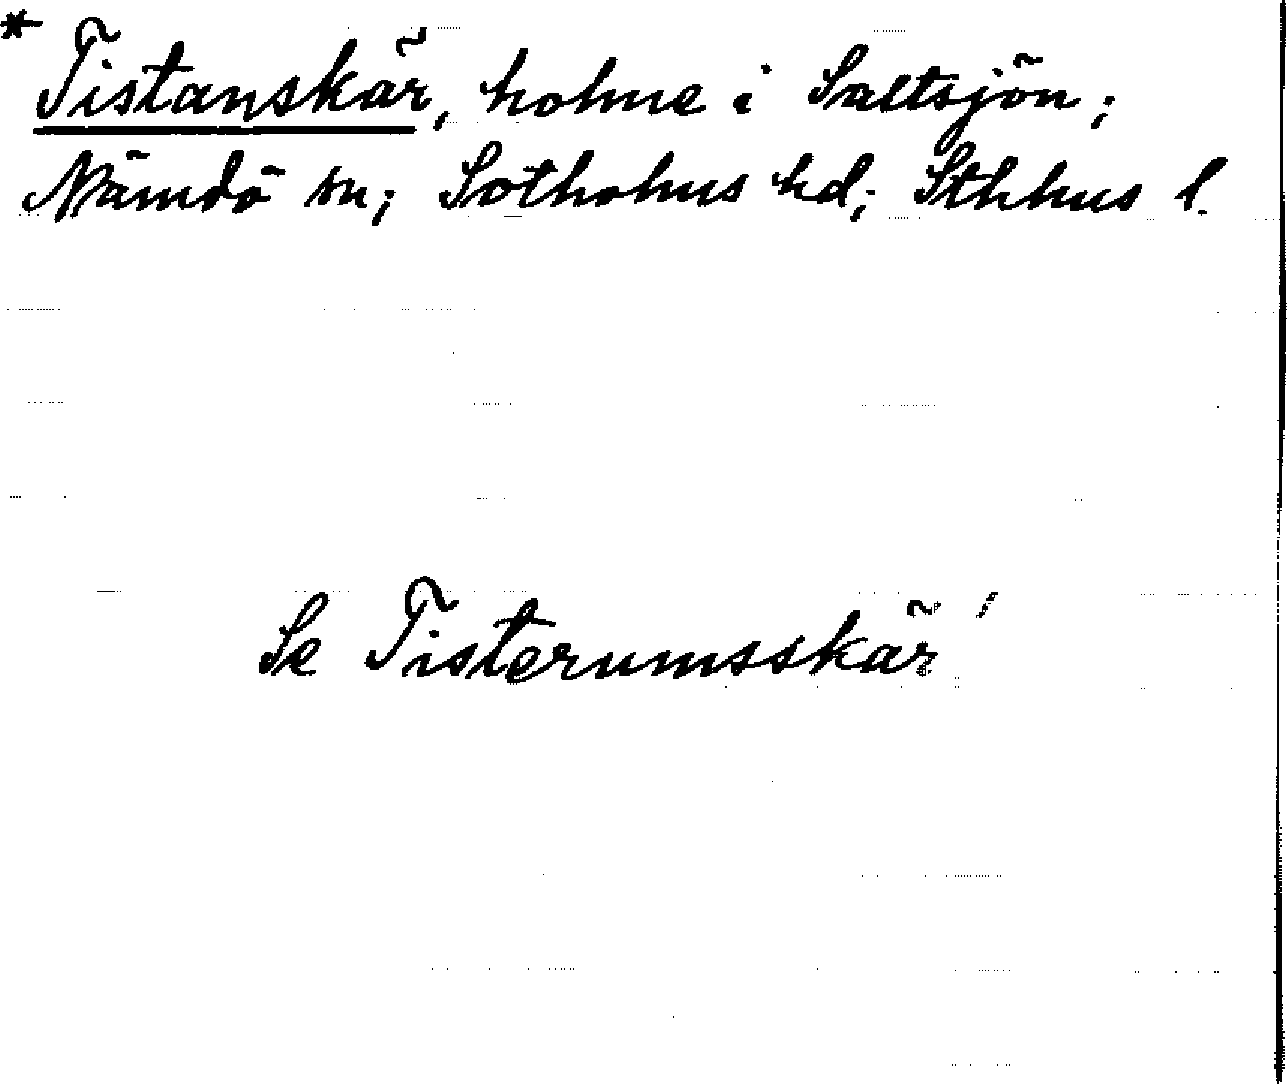 * Tistanskär, holme i Saltsjön;
Nämdö sn; Sotholms hd; Sthlms l.
Se Tisterumsskär!